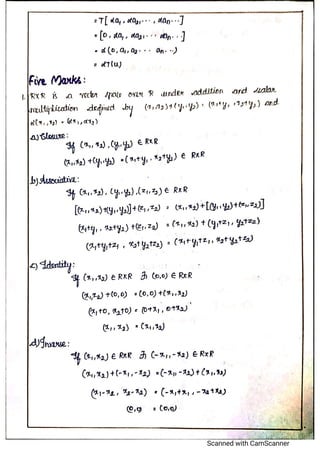 = T[αa₁, αa₂, ..., αan...]
= [0, αa₁, αa₂, ... αan...]
= α(0, a₁, a₂ ... an...)
= αT(u)
Five Marks:
1. R×R is a vector space over R under addition and scalar
multiplication defined by (x₁,x₂)+(y₁,y₂) = (x₁+y₁, x₂+y₂) and
α(x₁,x₂) = (αx₁, αx₂)
a) Closure:
If (x₁,x₂), (y₁,y₂) ∈ R×R
(x₁,x₂)+(y₁,y₂) = (x₁+y₁, x₂+y₂) ∈ R×R
b) Associative:
If (x₁,x₂), (y₁,y₂), (z₁,z₂) ∈ R×R
[(x₁,x₂)+(y₁,y₂)]+(z₁,z₂) = (x₁,x₂)+[(y₁,y₂)+(z₁,z₂)]
(x₁+y₁, x₂+y₂)+(z₁,z₂) = (x₁,x₂)+(y₁+z₁, y₂+z₂)
(x₁+y₁+z₁, x₂+y₂+z₂) = (x₁+y₁+z₁, x₂+y₂+z₂)
c) Identity:
If (x₁,x₂) ∈ R×R ∃ (0,0) ∈ R×R
(x₁,x₂)+(0,0) = (0,0)+(x₁,x₂)
(x₁+0, x₂+0) = (0+x₁, 0+x₂)
(x₁,x₂) = (x₁,x₂)
d) Inverse:
If (x₁,x₂) ∈ R×R ∃ (-x₁,-x₂) ∈ R×R
(x₁,x₂)+(-x₁,-x₂) = (-x₁,-x₂)+(x₁,x₂)
(x₁-x₂, x₂-x₂) = (-x₁+x₁, -x₂+x₂)
(0,0) = (0,0)
Scanned with CamScanner